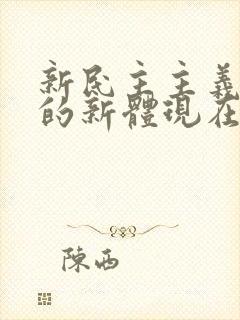 新民主主義
的新體現在
陳西